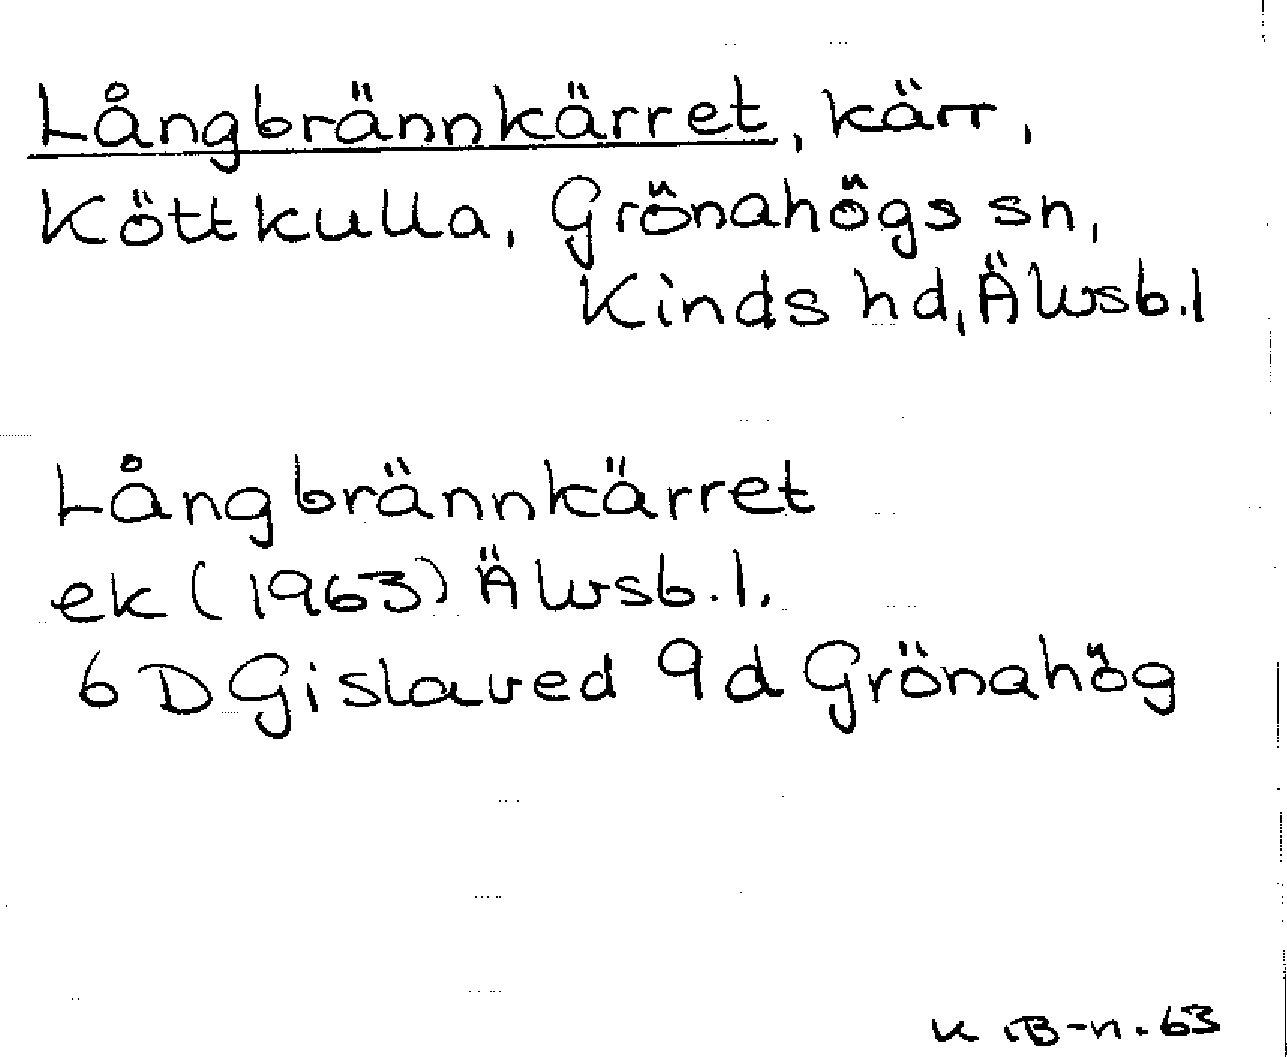 Långbrännkärret, kärr,
Köttkulla, Grönahögs sn,
Kinds hd, Älvsb. l
Långbrännkärret
ek (1963) Älvsb. l.
6D Gislaved 9d Grönahög
K. B-n. 63